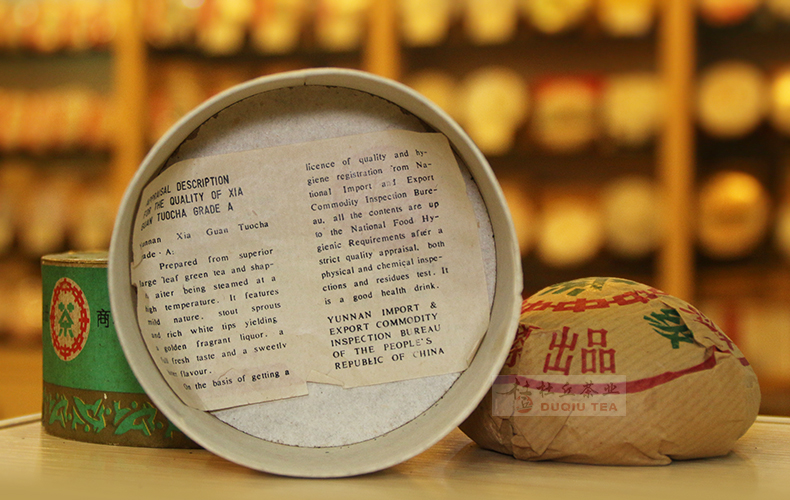 APPRAISAL DESCRIPTION
FOR THE QUALITY OF XIA
GUAN TUOCHA GRADE A
Yunnan Xia Guan Tuocha
Grade A:
Prepared from superior
large leaf green tea and shap-
after being steamed at a
high temperature. It features
mild nature, stout sprouts
and rich white tips yielding
a golden fragrant liquor, a
full fresh taste and a sweetly
flavour.
On the basis of getting a
licence of quality and hy-
giene registration from Na-
tional Import and Export
Commodity Inspection Bure-
au, all the contents are up
to the National Food Hy-
gienic Requirements after a
strict quality appraisal, both
physical and chemical inspe-
ctions and residues test. It
is a good health drink.
YUNNAN IMPORT &
EXPORT COMMODITY
INSPECTION BUREAU
OF THE PEOPLE'S
REPUBLIC OF CHINA
商
出品
杜丘茶业
DUQIU TEA